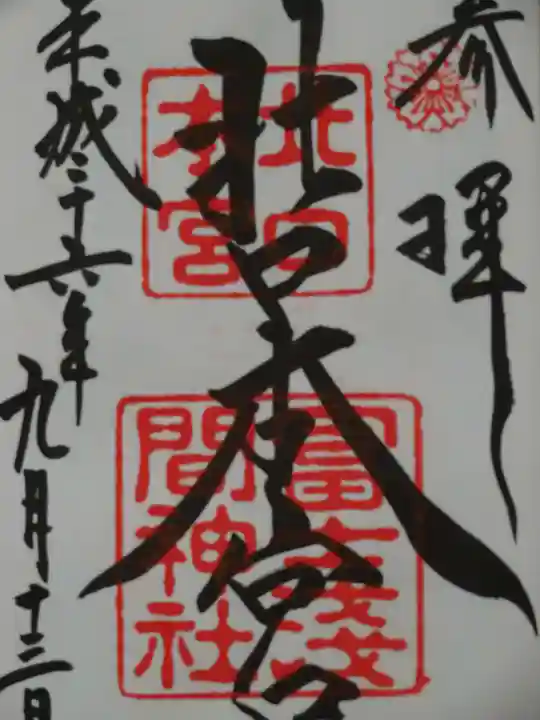 参拝
北口本宮
北口
本宮
冨士浅
間神社
平成二十六年九月十三日